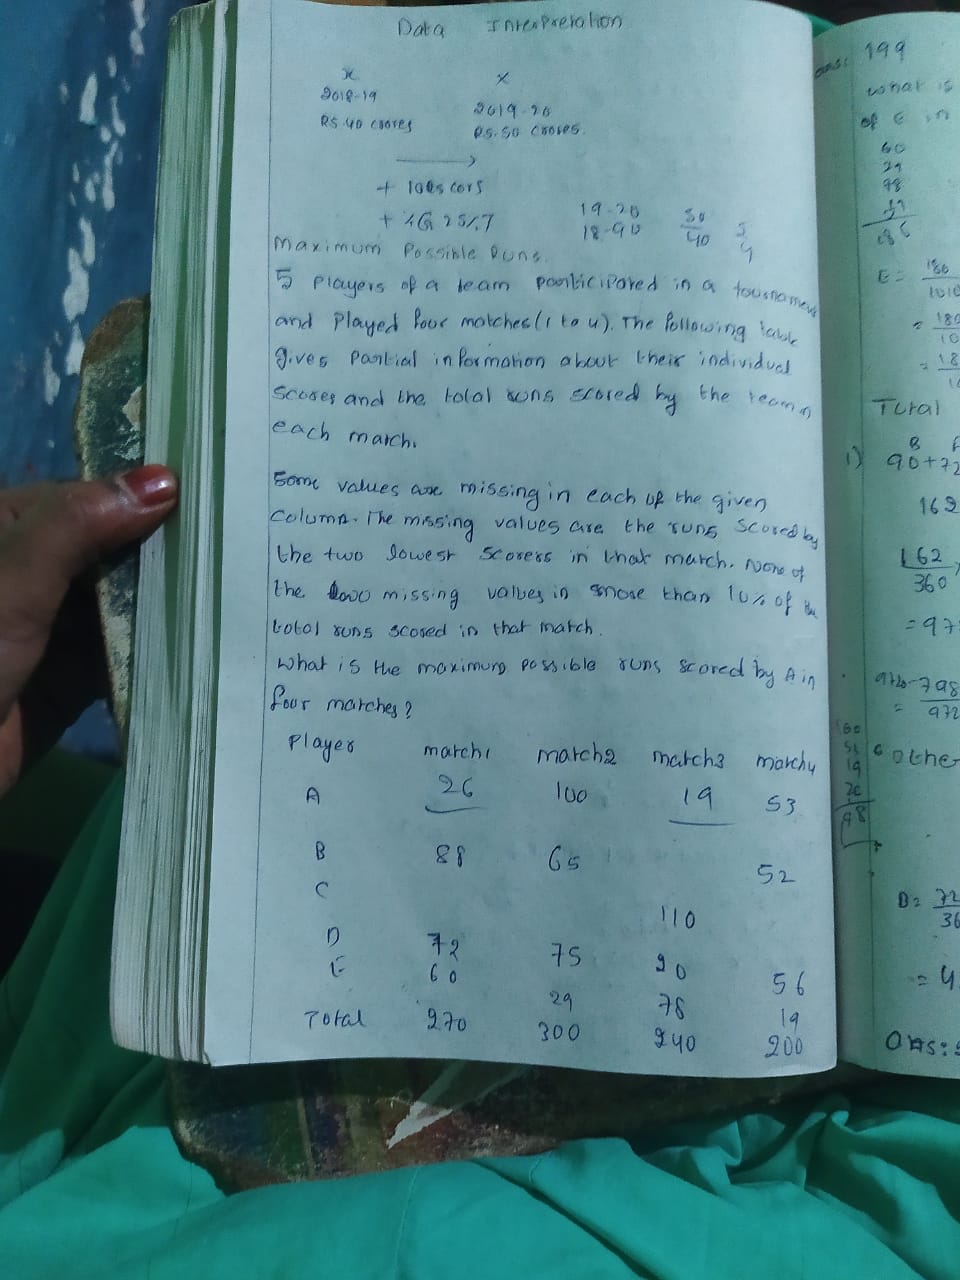 Data Interpretation
x x
2018-19 2019-20
RS.40 crores RS.50 crores.
+ 100s cors
+ %G 25%.7
19-20
18-90
50
40
5
4
Maximum Possible Runs.
5 Players of a team participated in a tournament
and Played four matches (1 to 4). The following table
gives Partial information about their individual
scores and the total runs scored by the team in
each march.
Some values are missing in each of the given
Column. The missing values are the runs scored by
the two lowest scorers in that march. None of
the two missing values in more than 10% of the
total runs scored in that match.
What is the maximum possible runs scored by A in
four marches?
Player march1 march2 march3 march4
A 26 100 19 53
B 88 65 52
C 110
D 72 75 20 56
E 60 29 78 19
Total 270 300 240 200
ans: 199
what is
of E in
60
29
78
19
186
E = 186
1010
= 180
10
= 18
Total
B
1) 90+72
162
162
360
=97
798
= 972
other
B= 72
36
= 4
Ans: